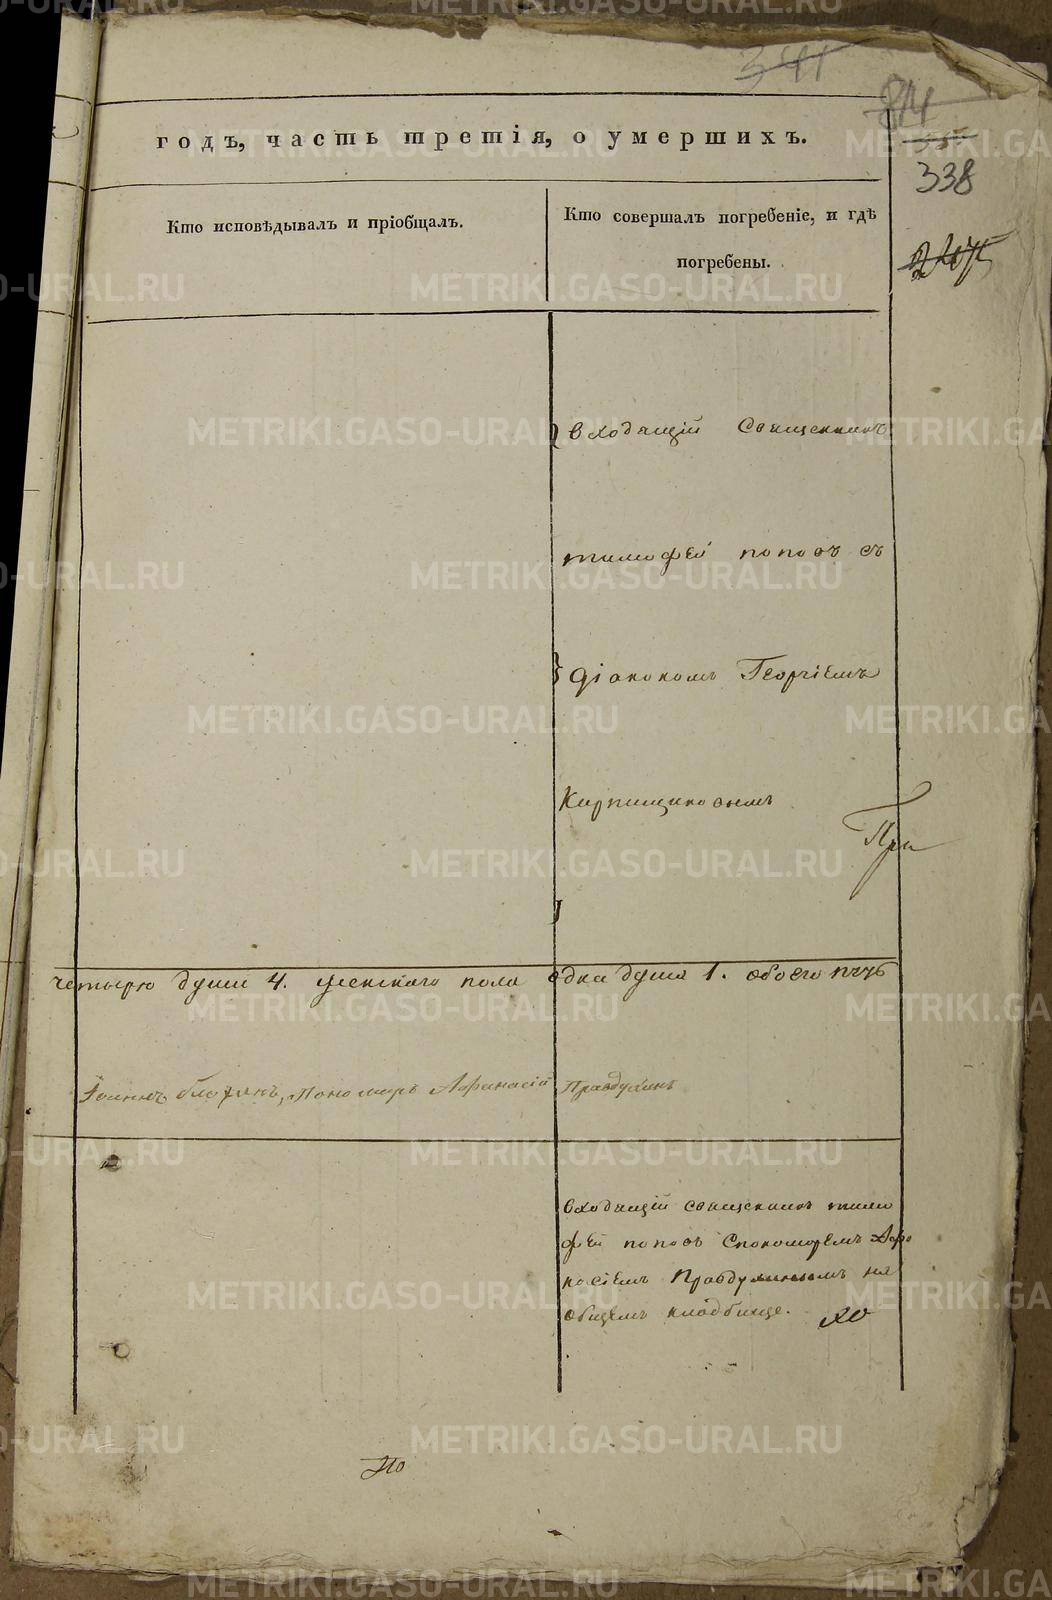 341
814
годъ, часть третія, о умершихъ.
338
Кто исповѣдывалъ и пріобщалъ.
Кто совершалъ погребеніе, и гдѣ
погребены.
входящій священникъ
тимофей поповъ съ
діакономъ Георгіемъ
Кирпищиковымъ
При
четыре души 4. женскаго пола одна душа 1. обоего пять
Іоаннъ Пономарь Афанасій Правдухинъ
входящій священникъ тимо
фей поповъ спономаремъ Афо
насіемъ Правдухинымъ на
общемъ кладбище.
по
METRIKI.GASO-URAL.RU